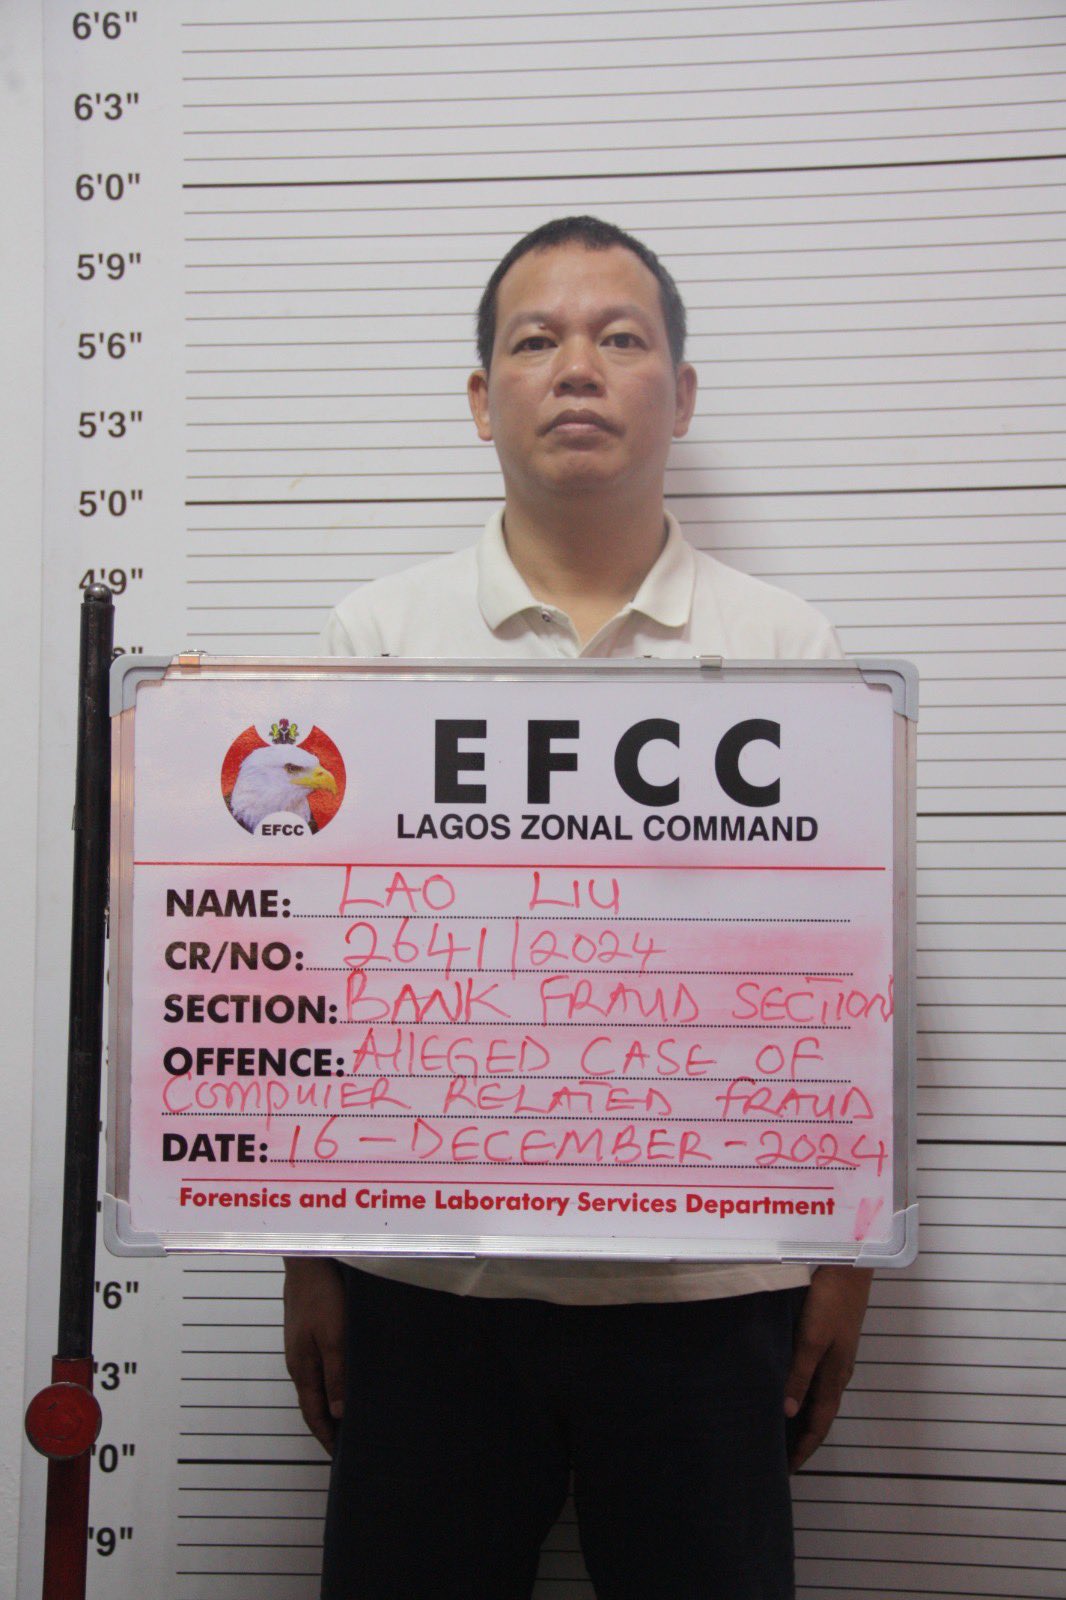 6'6"
6'3"
6'0"
5'9"
5'6"
5'3"
5'0"
4'9"
EFCC
EFCC
LAGOS ZONAL COMMAND
NAME: LAO LIU
CR/NO: 2641/2024
SECTION: BANK FRAUD SECTION
OFFENCE: AllEGED CASE OF
COMPUTER RELATED FRAUD
DATE: 16-DECEMBER-2024
Forensics and Crime Laboratory Services Department
'6"
'3"
'0"
'9"